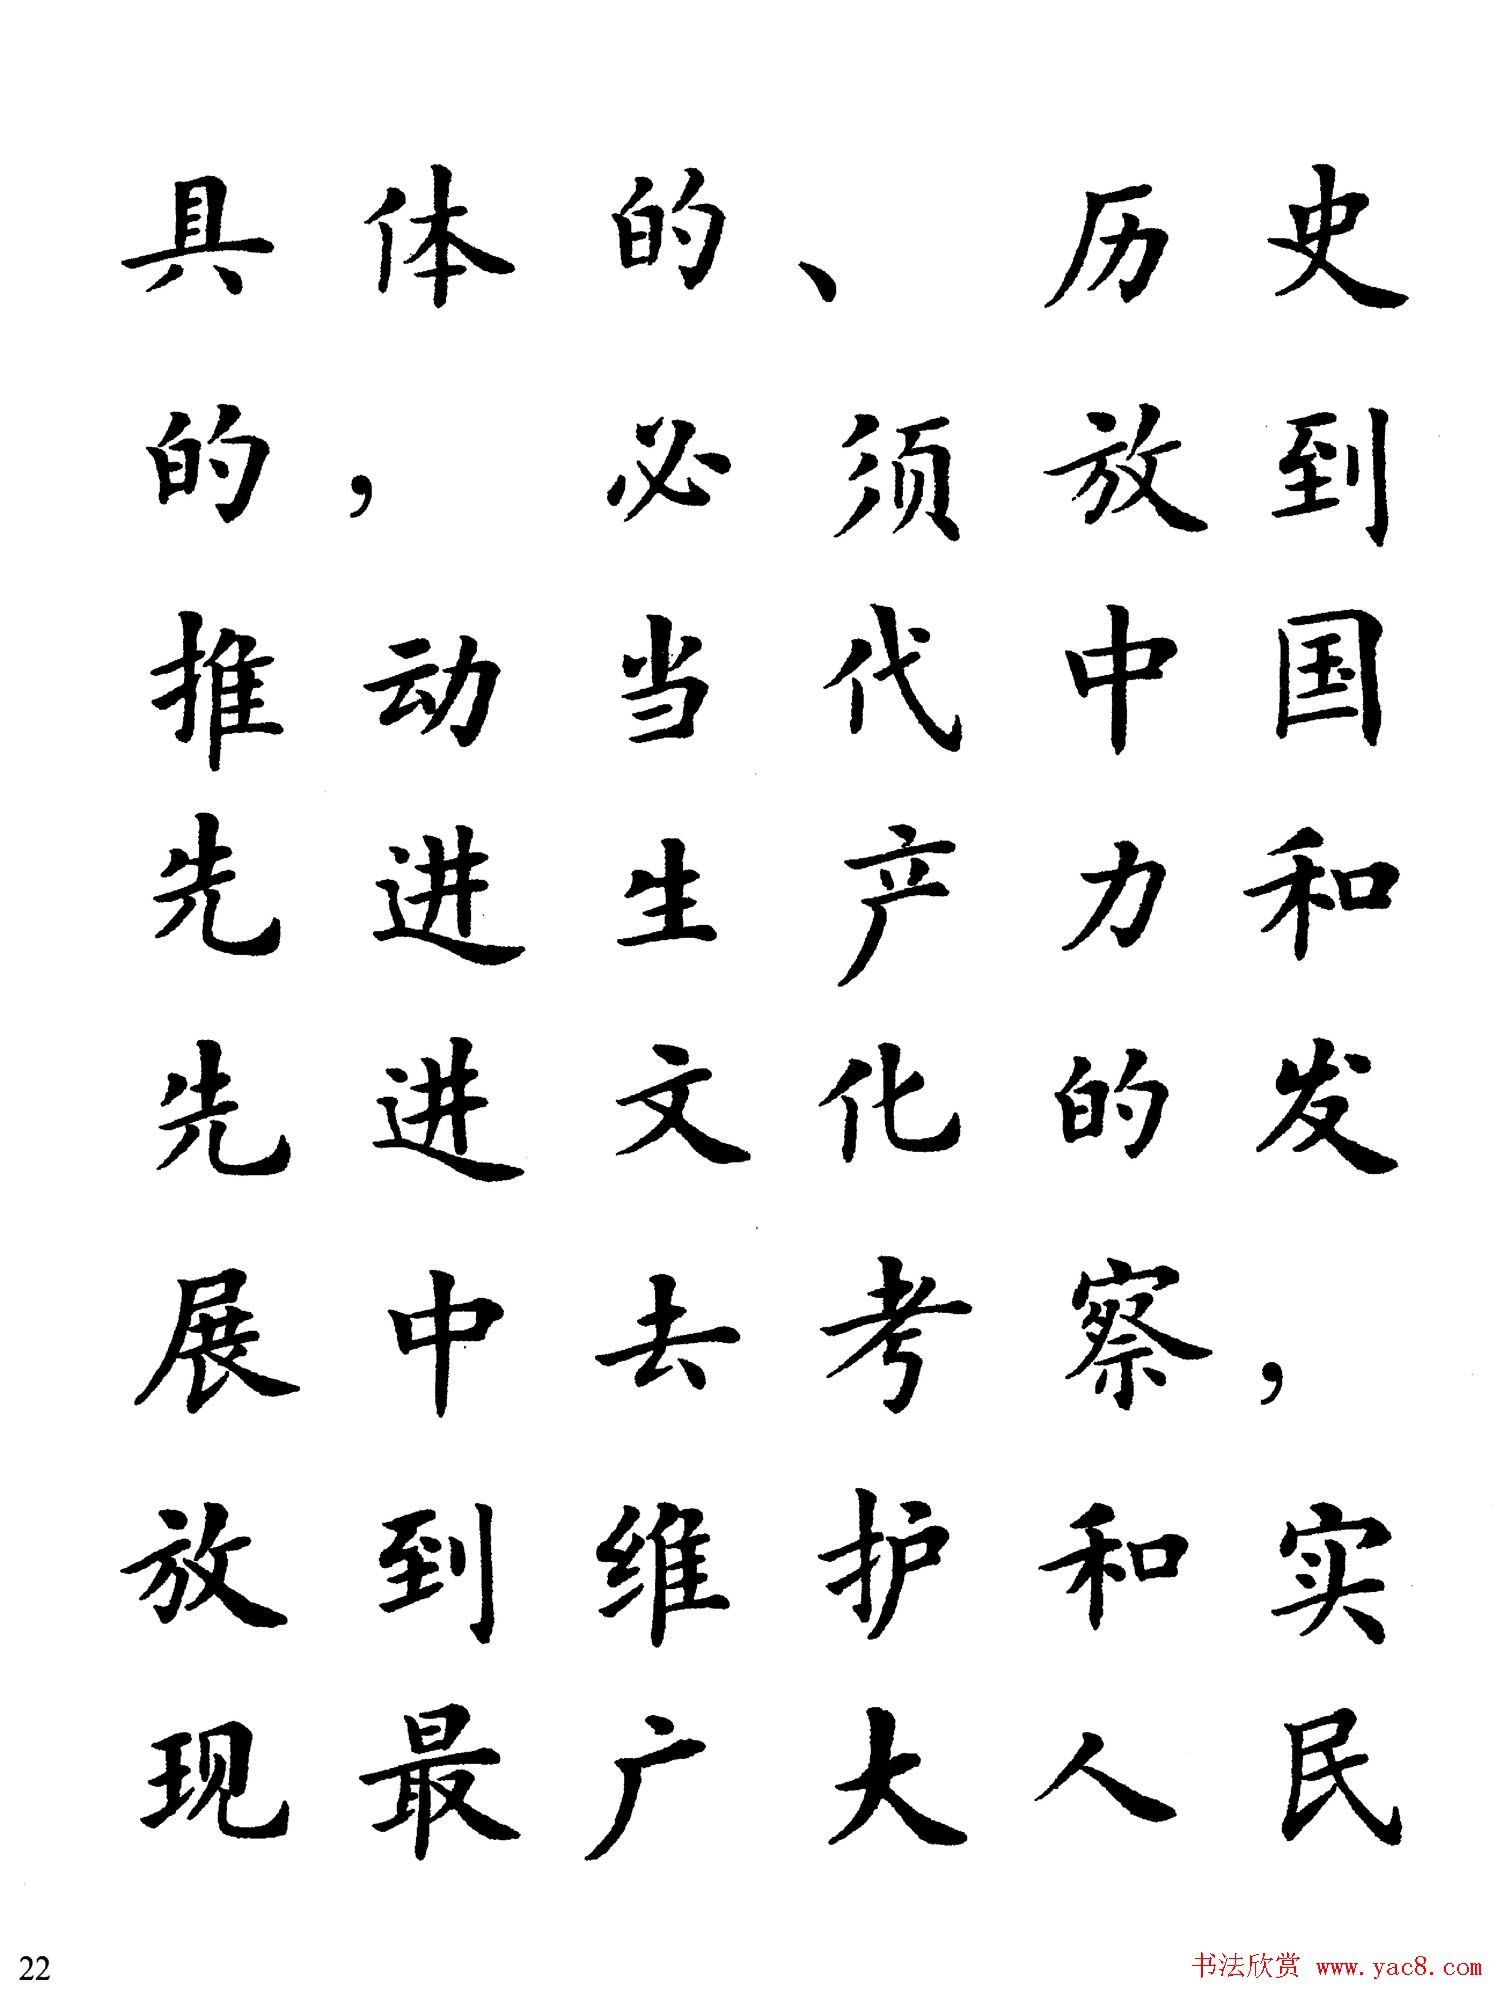 具体的、历史
的，必须放到
推动当代中国
先进生产力和
先进文化的发
展中去考察，
放到维护和实
现最广大人民
22
书法欣赏 www.yac8.com